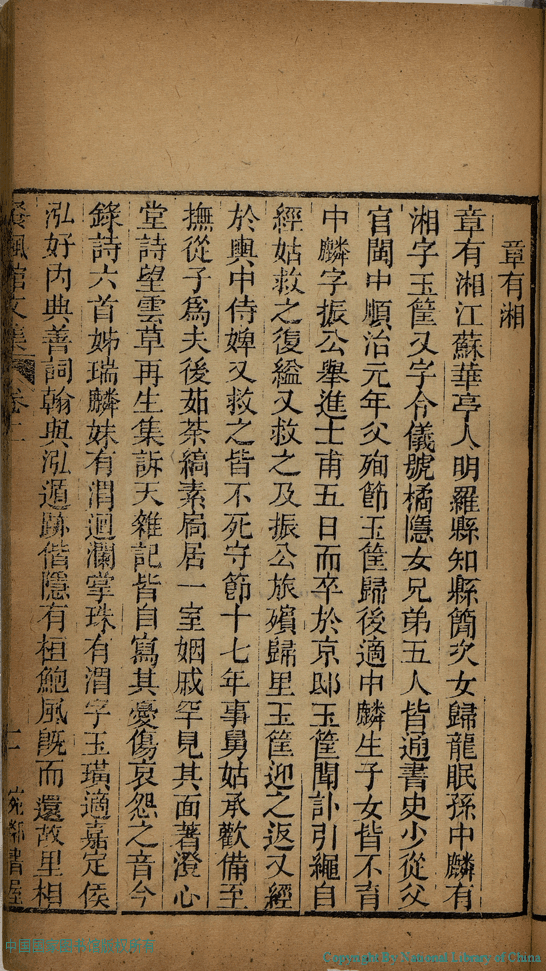 章有湘
章有湘江蘇華亭人明羅縣知縣簡次女歸龍眠孫中麟有
湘字玉筐又字令儀號橘隱女兄弟五人皆通書史少從父
官閩中順治元年父殉節玉筐歸後適中麟生子女皆不育
中麟字振公舉進士甫五日而卒於京邸玉筐聞訃引繩自
經姑救之復縊又救之及振公旅殯歸里玉筐迎之返又經
於輿中侍婢又救之皆不死守節十七年事舅姑承歡備至
撫從子爲夫後茹荼縞素扃居一室姻戚罕見其面著澄心
堂詩望雲草再生集訴天雜記皆自寫其憂傷哀怨之音今
錄詩六首姊瑞麟妹有渭迴瀾掌珠有渭字玉璜適嘉定侯
泓好內典善詞翰與泓遁跡偕隱有桓鮑風旣而還故里相
文集 卷二 十一 書屋
Copyright By National Library of China